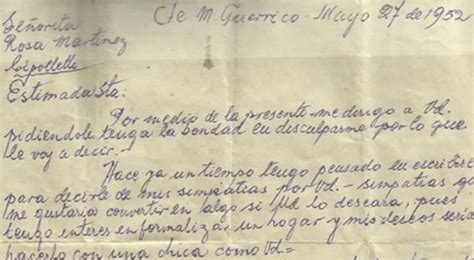 Cte M. Guerrico - Mayo 27 de 1952
Señorita
Rosa Martinez
Cipolletti
Estimada Sta:
Por medio de la presente me dirigo a Vd.
pidiendole tenga la bondad en disculparme por lo que
le voy a decir.-
Hace ya un tiempo tengo pensado en escribirle
para decirle de mis simpatias por Vd.- simpatias que
me gustaria convertir en algo si Vd lo deseara, pues
tengo interes en formalizar un hogar y mis deseos seria
hacerlo con una chica como Vd=